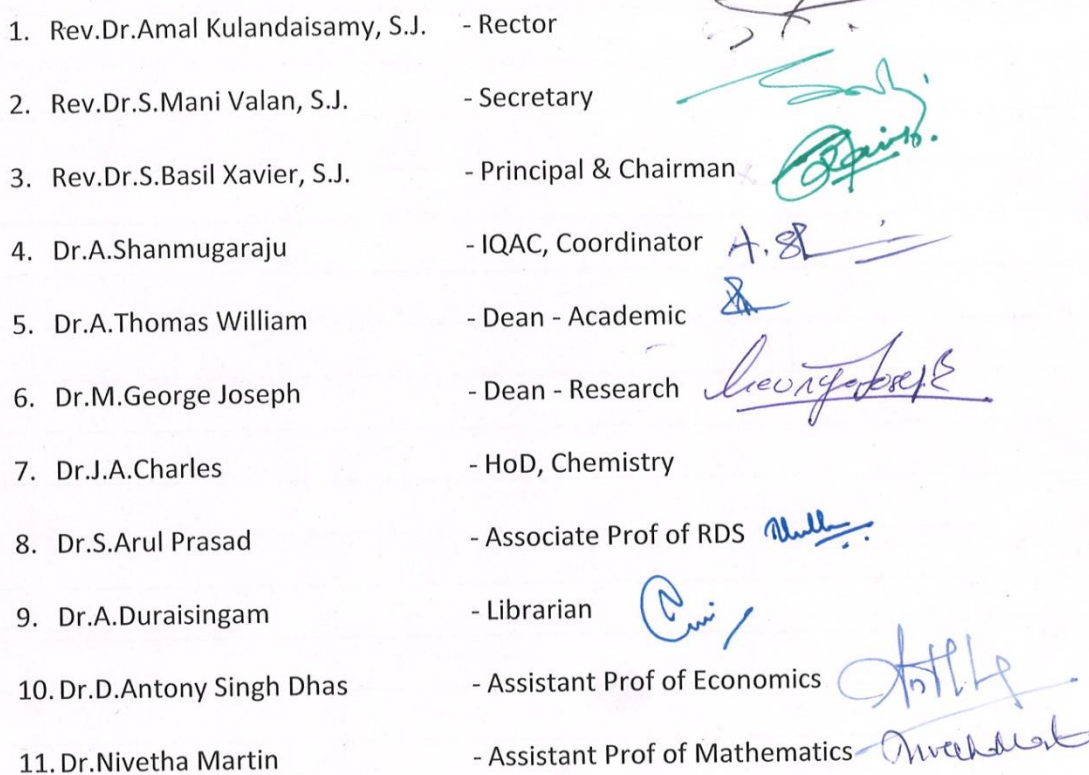 1. Rev.Dr.Amal Kulandaisamy, S.J. - Rector
2. Rev.Dr.S.Mani Valan, S.J. - Secretary
3. Rev.Dr.S.Basil Xavier, S.J. - Principal & Chairman
4. Dr.A.Shanmugaraju - IQAC, Coordinator A.Sh
5. Dr.A.Thomas William - Dean - Academic
6. Dr.M.George Joseph - Dean - Research George Joseph
7. Dr.J.A.Charles - HoD, Chemistry
8. Dr.S.Arul Prasad - Associate Prof of RDS
9. Dr.A.Duraisingam - Librarian
10. Dr.D.Antony Singh Dhas - Assistant Prof of Economics
11. Dr.Nivetha Martin - Assistant Prof of Mathematics